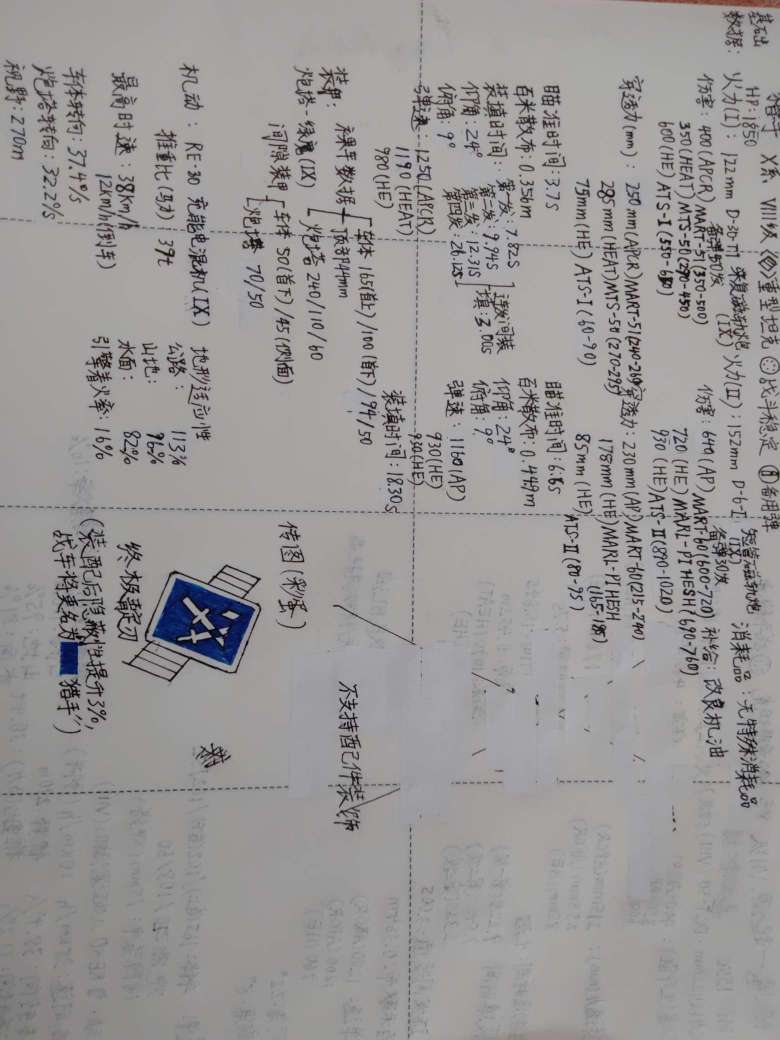 猎手 X系 VIII级 重型坦克 战斗稳定 备用弹
基础
数据:
HP:1850
火力(I): 122mm D-30-П 来复磁轨炮 (IX)
备弹50发
伤害: 400(APCR)MART-51(350-500)
350(HEAT)MTS-50(290-450)
600(HE)ATS-I(550-680)
穿透力(mm): 250mm(APCR)MART-51(240-260)
285mm(HEAT)MTS-50(270-295)
75mm(HE)ATS-I(60-90)
瞄准时间: 3.7s
百米散布: 0.356m
装填时间: 第一发: 7.82s
第二发: 9.94s
第三发: 12.31s
第四发: 26.12s
连发间装
填: 3.00s
仰角: 24°
俯角: 9°
弹速: 1250(APCR)
1190(HEAT)
980(HE)
火力(II): 152mm D-6-I 短管磁轨炮 (IX)
备弹30发
伤害: 640(AP)MART-60(600-720)
720(HE)MARL-PI HESH(690-760)
930(HE)ATS-II(890-1020)
穿透力: 230mm(AP)MART-60(215-240)
178mm(HE)MARL-PI HESH
(165-185)
85mm(HE)
ATS-II(80-95)
瞄准时间: 6.6s
百米散布: 0.449m
仰角: 24°
俯角: 9°
弹速: 1160(AP)
930(HE)
950(HE)
装填时间: 18.30s
消耗品: 无特殊消耗品
补给: 改良机油
装甲: 裸车数据
车体 165(首上)/100(首下)/94/50
顶部44mm
炮塔 240/110/60
炮塔-绿魔(IX)
间隙装甲
车体 50(首下)/45(侧面)
炮塔 70/50
机动: RE-30 充能电混机(IX)
推重比(马力): 39t
最高时速: 38km/h
12km/h(倒车)
车体转向: 37.4°/s
炮塔转向: 32.2°/s
视野: 270m
地形适应性
公路: 113%
山地: 96%
水面: 82%
引擎着火率: 16%
不支持配件装饰
传图(彩蛋)
终极
(装配后隐蔽性提升3%,
战车将更名为
猎手")